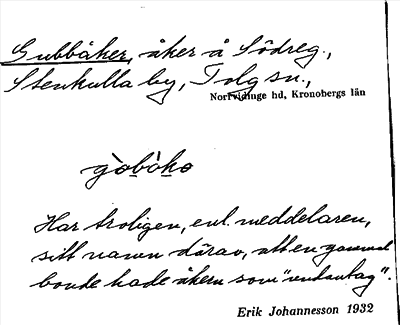 Gubbåker, åker å Södreg.,
Stenkulla by, Tolg sn.,
Norrvidinge hd, Kronobergs län
gòbò̀ko
Har troligen, enl. meddelaren,
sitt namn därav, att en gammal
bonde hade åkern som "undantag".
Erik Johannesson 1932